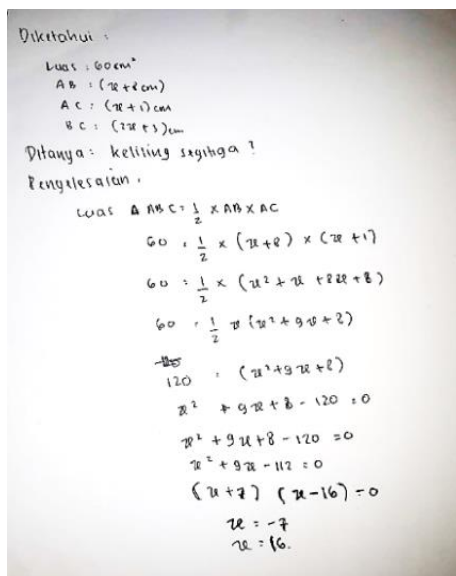 Diketahui :
Luas : 60 cm²
AB : (x + 8 cm)
AC : (x + 1) cm
BC : (2x + 3) cm
Ditanya : keliling segitiga ?
Pengelesaian .
Luas Δ ABC = 1/2 x AB x AC
60 = 1/2 x (x+8) x (x+1)
60 = 1/2 x (x² + x + 8x + 8)
60 = 1/2 x (x² + 9x + 8)
120 = (x² + 9x + 8)
x² + 9x + 8 - 120 = 0
x² + 9x + 8 - 120 = 0
x² + 9x - 112 = 0
(x + 7) (x - 16) = 0
x = -7
x = 16.